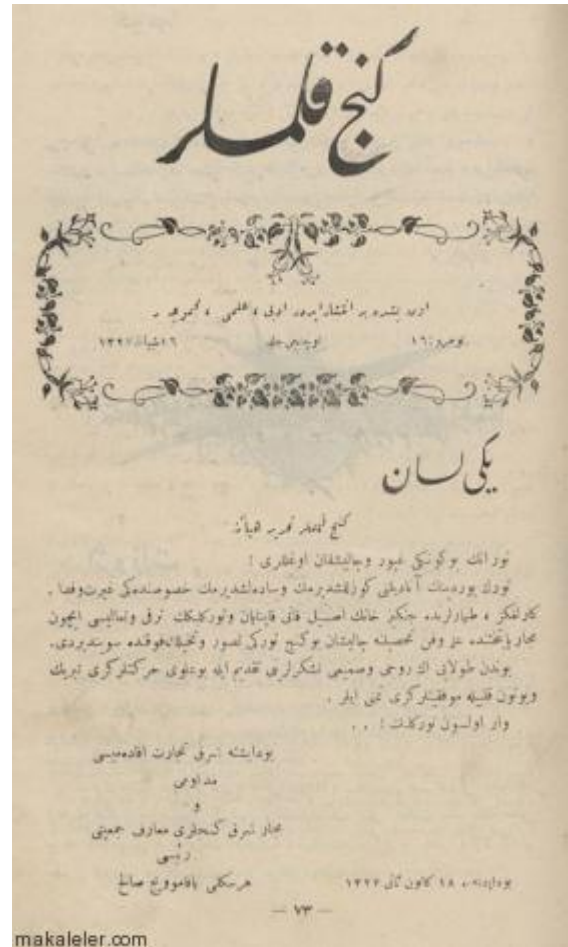 كنج قلملر
اون بشده بر انتشار ايدر ، ادبى ، علمى ، مجموعه در
نومرو : ١٦
ايكنجى جلد
١٣٢٧
يكى لسان
كنج قلملر تحرير هيأتنه
تورانك بوكونكى غيور وچاليشقان اوغللرى !
تورك يوردينك آنا ديلنى كوزللشديرمك وساده لشديرمك خصوصنده كى غيرت وفدا
كارلقكز ، طمارلرنده جنكيز خانك اصيل قانى قاينايان وتوركلكك ترقى وتعاليسى ايچون
مجار پايتختنده علم وفن تحصيلنه چاليشان بو كنج توركى تصور وتخيلك فوقنده سونديردى.
بوندن طولايى اك روحى وصميمى تشكرلرمى تقديم ايله بو علوى حركتلركزى تبريك
وبوتون قلبمله موفقيتلركزى تمنى ايلرم .
وار اولسون توركلك ! . .
بوداپشته شرق تجارت اقاده ميسى
مداومى
و
مجار شرق كنجلرى معارف جمعيتى
رئيسى
هرسكلى صالح
بوداپشته ، ١٨ كانون ثانى ١٣٢٧
— ٧٣ —
makaleler.com